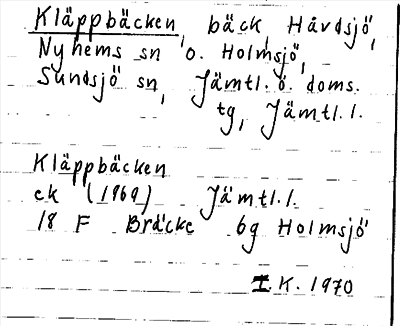 Kläppbäcken, bäck, Håvdsjö,
Nyhems sn o. Holmsjö,
Sundsjö sn, Jämtl. ö. doms.
tg, Jämtl.l.
Kläppbäcken
ek (1969) Jämtl.l.
18 F Bräcke 6g Holmsjö
I.K. 1970